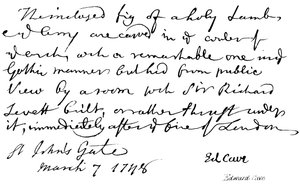 The inclosed fig of a holy Lamb
& Cherry are carved in y^e center of
wch a remarkable one in y^e
Gothic manner but hid from public
View by a room wch Sir Richard
Levett built, or rather thrust under
it, immediately after y^e fire of London
St Johns Gate
March 7 1748
Ed Cave
Edward Cave